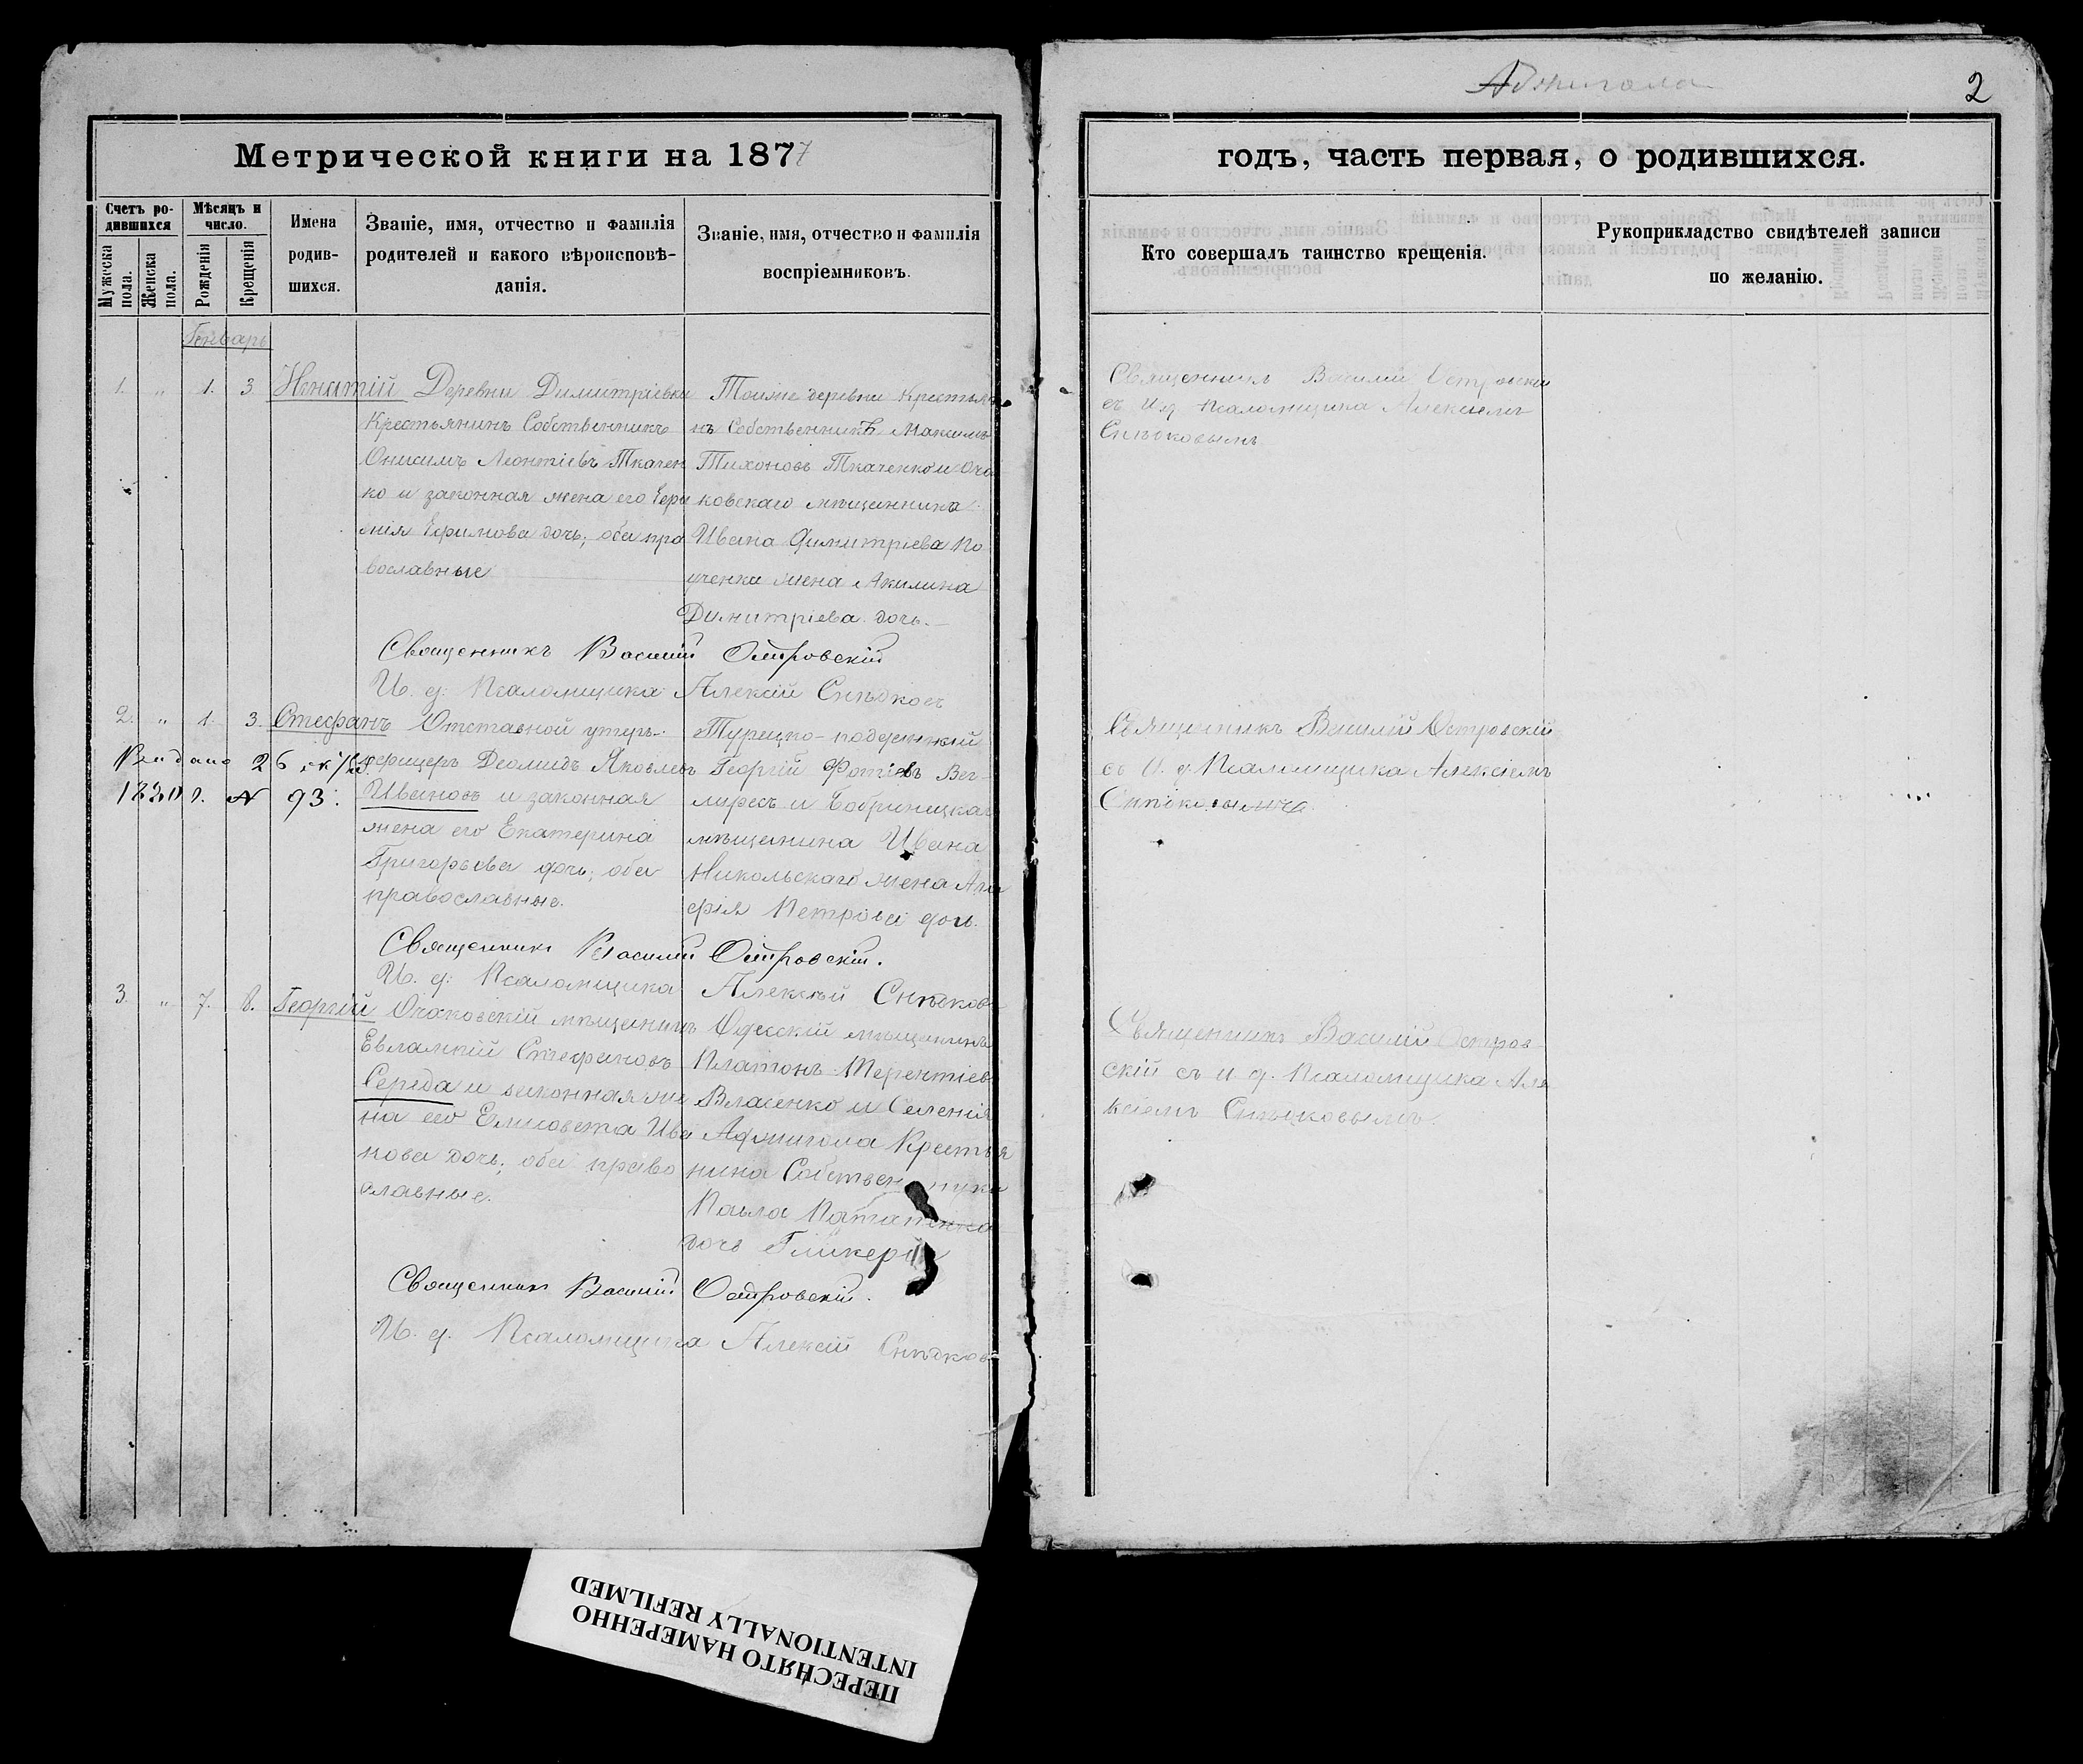 Аджигола
2
Метрической книги на 1877
годъ, часть первая, о родившихся.
Счетъ ро-
дившихся
Мѣсяцъ и
число.
Мужеска
пола.
Женска
пола.
Рожденія
Крещенія
Имена
родив-
шихся.
Званіе, имя, отчество и фамилія
родителей и какого вѣроисповѣ-
данія.
Званіе, имя, отчество и фамилія
воспріемниковъ.
Кто совершалъ таинство крещенія.
Рукоприкладство свидѣтелей записи
по желанію.
Генварь
1. " 1. 3 Игнатій
Деревни Димитріевки
Крестьянинъ Собственникъ
Онисимъ Леонтіевъ Ткачен
ко и законная жена его
Ефимова дочь; оба пра
вославные
Тоиже деревни Крестья
нъ Собственникъ Максимъ
Тихоновъ Ткаченко и Оча
ковскаго мѣщанина
Ивана Димитріева
жена Акилина
Димитріева дочь.
Священникъ Василій Островскій
И. д. Псаломщика Алексій Снѣдковъ
Священникъ Василій Островскій
съ И. д. Псаломщика Алексіемъ
Снѣдковымъ
2. " 1. 3. Стефанъ
Отставной унтеръ-
офицеръ Деомидъ Яковлевъ
Ивановъ и законная
жена его Екатерина
Григорьева дочь; оба
православные.
26
N 93.
Турецко-подданный
Георгій Фотіевъ
и Бобринецкаго
мѣщанина Ивана
Никольскаго жена
Петрова дочь.
Священникъ Василій Островскій.
И. д. Псаломщика Алексѣй Снѣдковъ
Священникъ Василій Островскій
съ И. д. Псаломщика Алексіемъ
Снѣдковымъ.
3. " 7. 8. Георгій
Очаковскій мѣщанинъ
Евлампій Стефановъ
Середа и законная же
на его Елисавета Ива
нова дочь; оба право
славные.
Одесскій мѣщанинъ
Платонъ Терентіевъ
Власенко и Селенія
Аджигола Крестья
нина Собственника
Павла
дочь Гликерія
Священникъ Василій Островскій.
И. д. Псаломщика Алексій Снѣдковъ
Священникъ Василій Остров-
скій съ и. д. Псаломщика Але
ксіемъ Снѣдковымъ.
ПЕРЕСНЯТО НАМЕРЕННО
INTENTIONALLY REFILMED